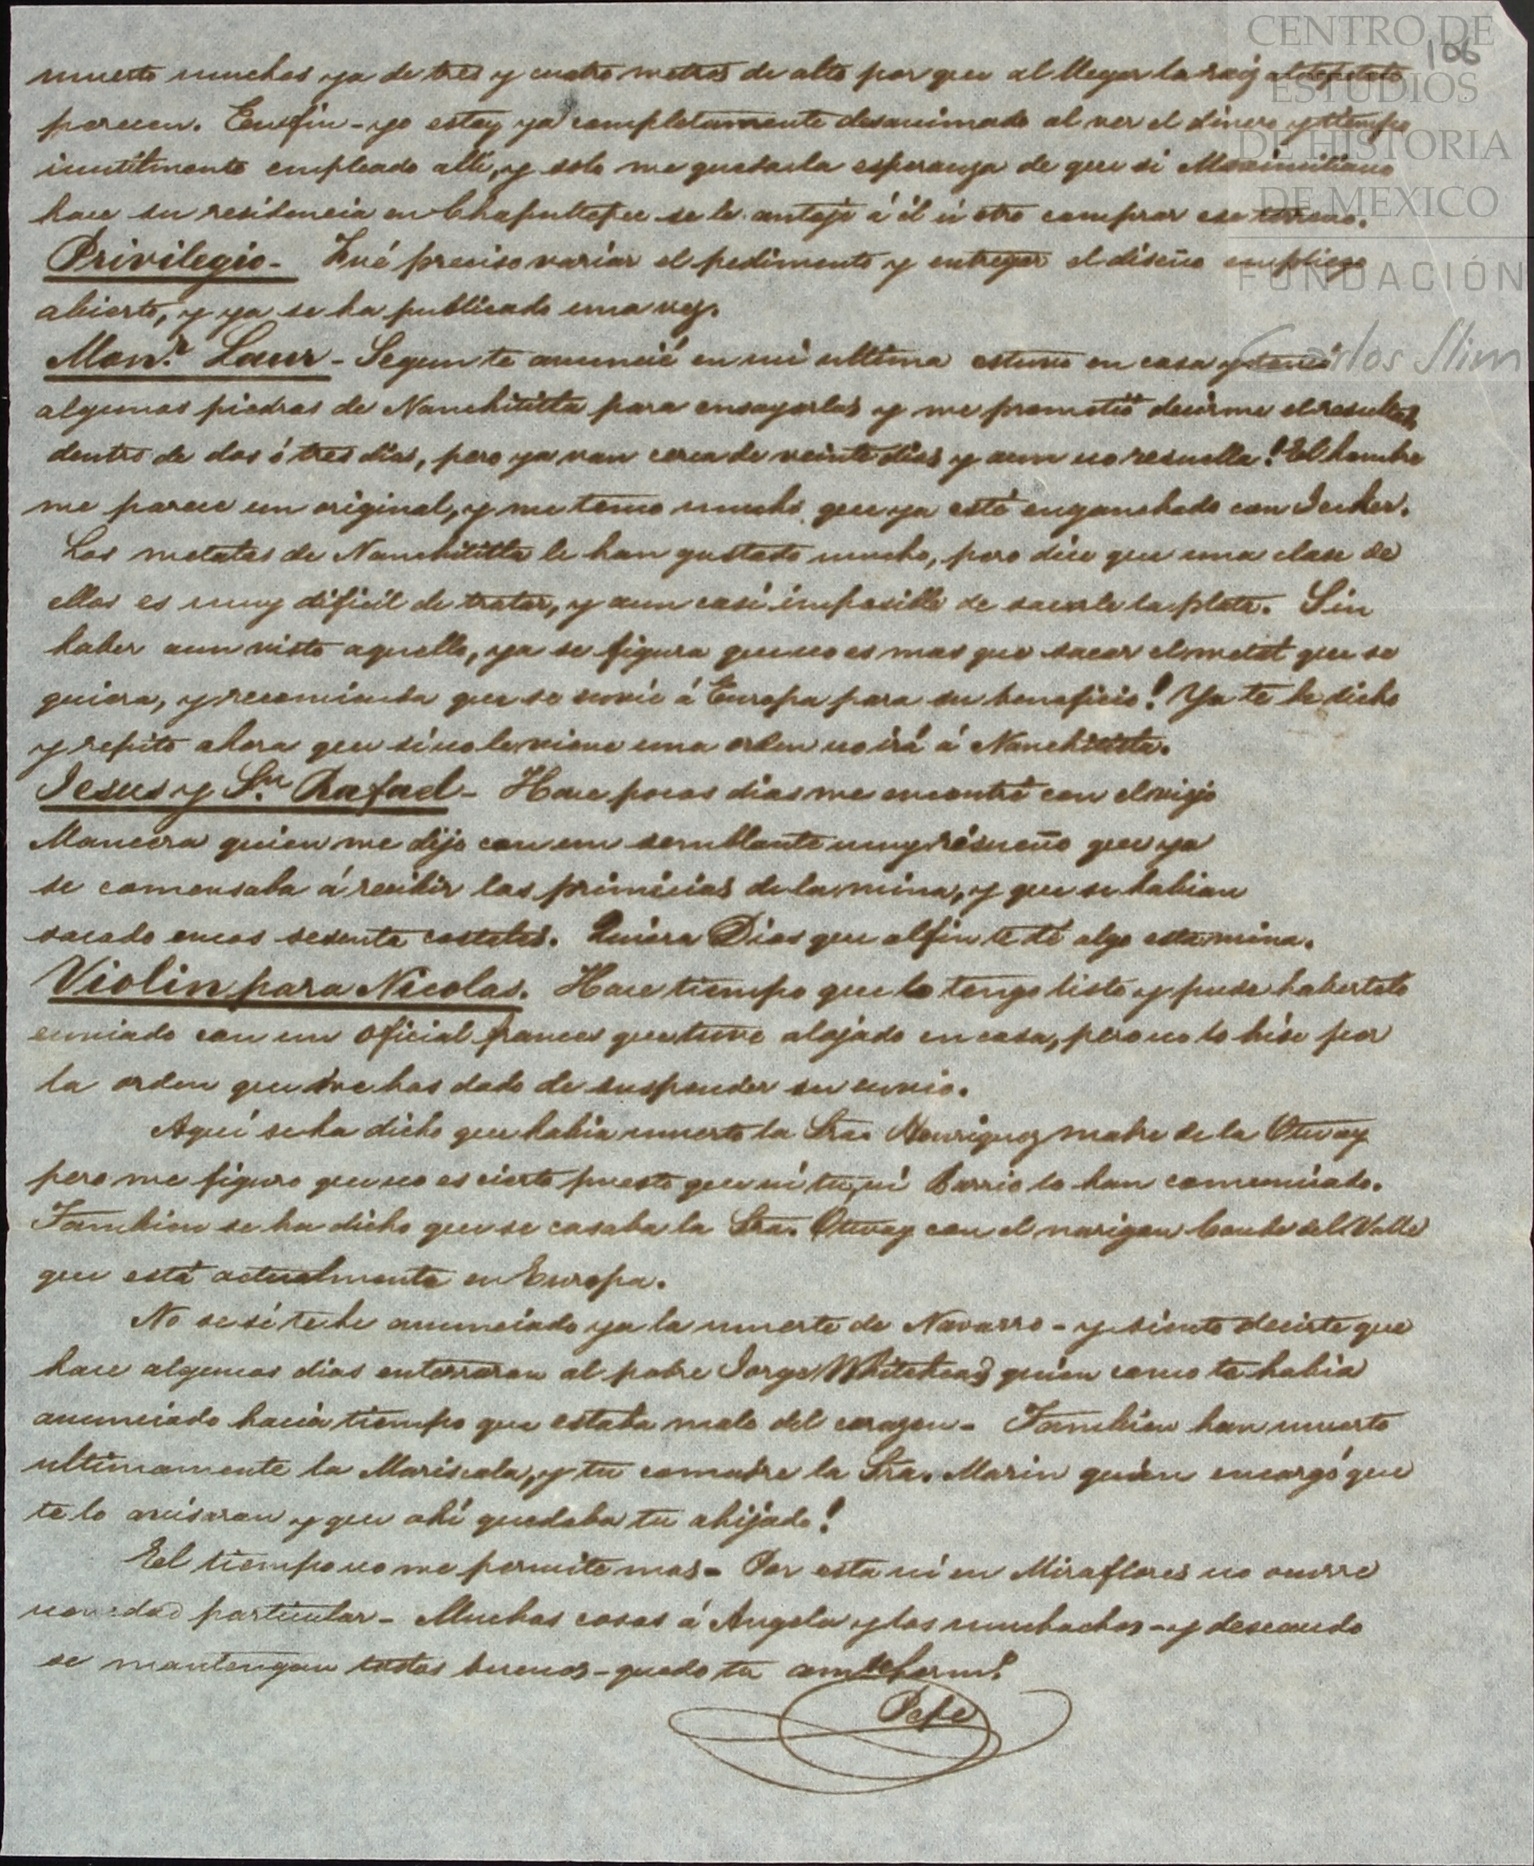 CENTRO DE
ESTUDIOS
DE HISTORIA
DE MEXICO
FUNDACIÓN
Carlos Slim
106
muerto muchos ya de tres y cuatro metros de alto por que al llegar la raiz al tepetate
perecen. En fin - yo estoy ya completamente desanimado al ver el dinero y tiempo
inutilmente empleado alli, y solo me queda la esperanza de que si Maximiliano
hace su residencia en Chapultepec se le antoje á él ú otro comprar ese terreno.
Privilegio - Fué preciso variar el pedimento y entregar el diseño en pliego
abierto, y ya se ha publicado una vez.
Monr. Laur - Segun te anuncié en mi ultima estuvo en casa y tomó
algunas piedras de Nanchititla para ensayarlas y me prometió decirme el resultado
dentro de dos ó tres dias, pero ya van cerca de veinte dias y aun no resuella! El hombre
me parece un original, y me temo mucho que ya esté enganchado con Jecker.
Los metales de Nanchititla le han gustado mucho, pero dice que una clase de
ellos es muy dificil de tratar, y aun casi imposible de sacarle la plata. Sin
haber aun visto aquello, ya se figura que no es mas que sacar el metal que se
quiera, y recomienda que se envie á Europa para su beneficio! Ya te he dicho
y repito ahora que si no le viene una orden no irá á Nanchititla.
Jesus y Sn. Rafael - Hace pocos dias me encontré con el viejo
Mancera quien me dijo con un semblante muy risueño que ya
se comensaba á recibir las primicias de la mina, y que se habian
sacado unos sesenta costales. Quiera Dios que al fin te dé algo esta mina.
Violin para Nicolas. Hace tiempo que lo tengo listo y pude habertelo
enviado con un oficial frances que tuve alojado en casa, pero no lo hise por
la orden que me has dado de suspender su envio.
Aquí se ha dicho que habia muerto la Sra. Henriquez madre de la Otway
pero me figuro que no es cierto puesto que ni tu, ni Barrio lo han comunicado.
Tambien se ha dicho que se casaba la Sra. Otway con el narigon Conde del Valle
que está actualmente en Europa.
No se si te he anunciado ya la muerte de Navarro - y siento decirte que
hace algunos dias enterraron al pobre Jorge Whitehead quien como te habia
anunciado hacia tiempo que estaba malo del corazon - Tambien han muerto
ultimamente la Mariscala, y tu comadre la Sra. Marin quien encargó que
te lo avisaran y que ahi quedaba tu ahijado!
El tiempo no me permite mas - Por esta ni en Miraflores no ocurre
novedad particular - Muchas cosas á Angela y los muchachos - y deseando
se mantengan todos buenos - quedo tu amte. herm.o
Pepe